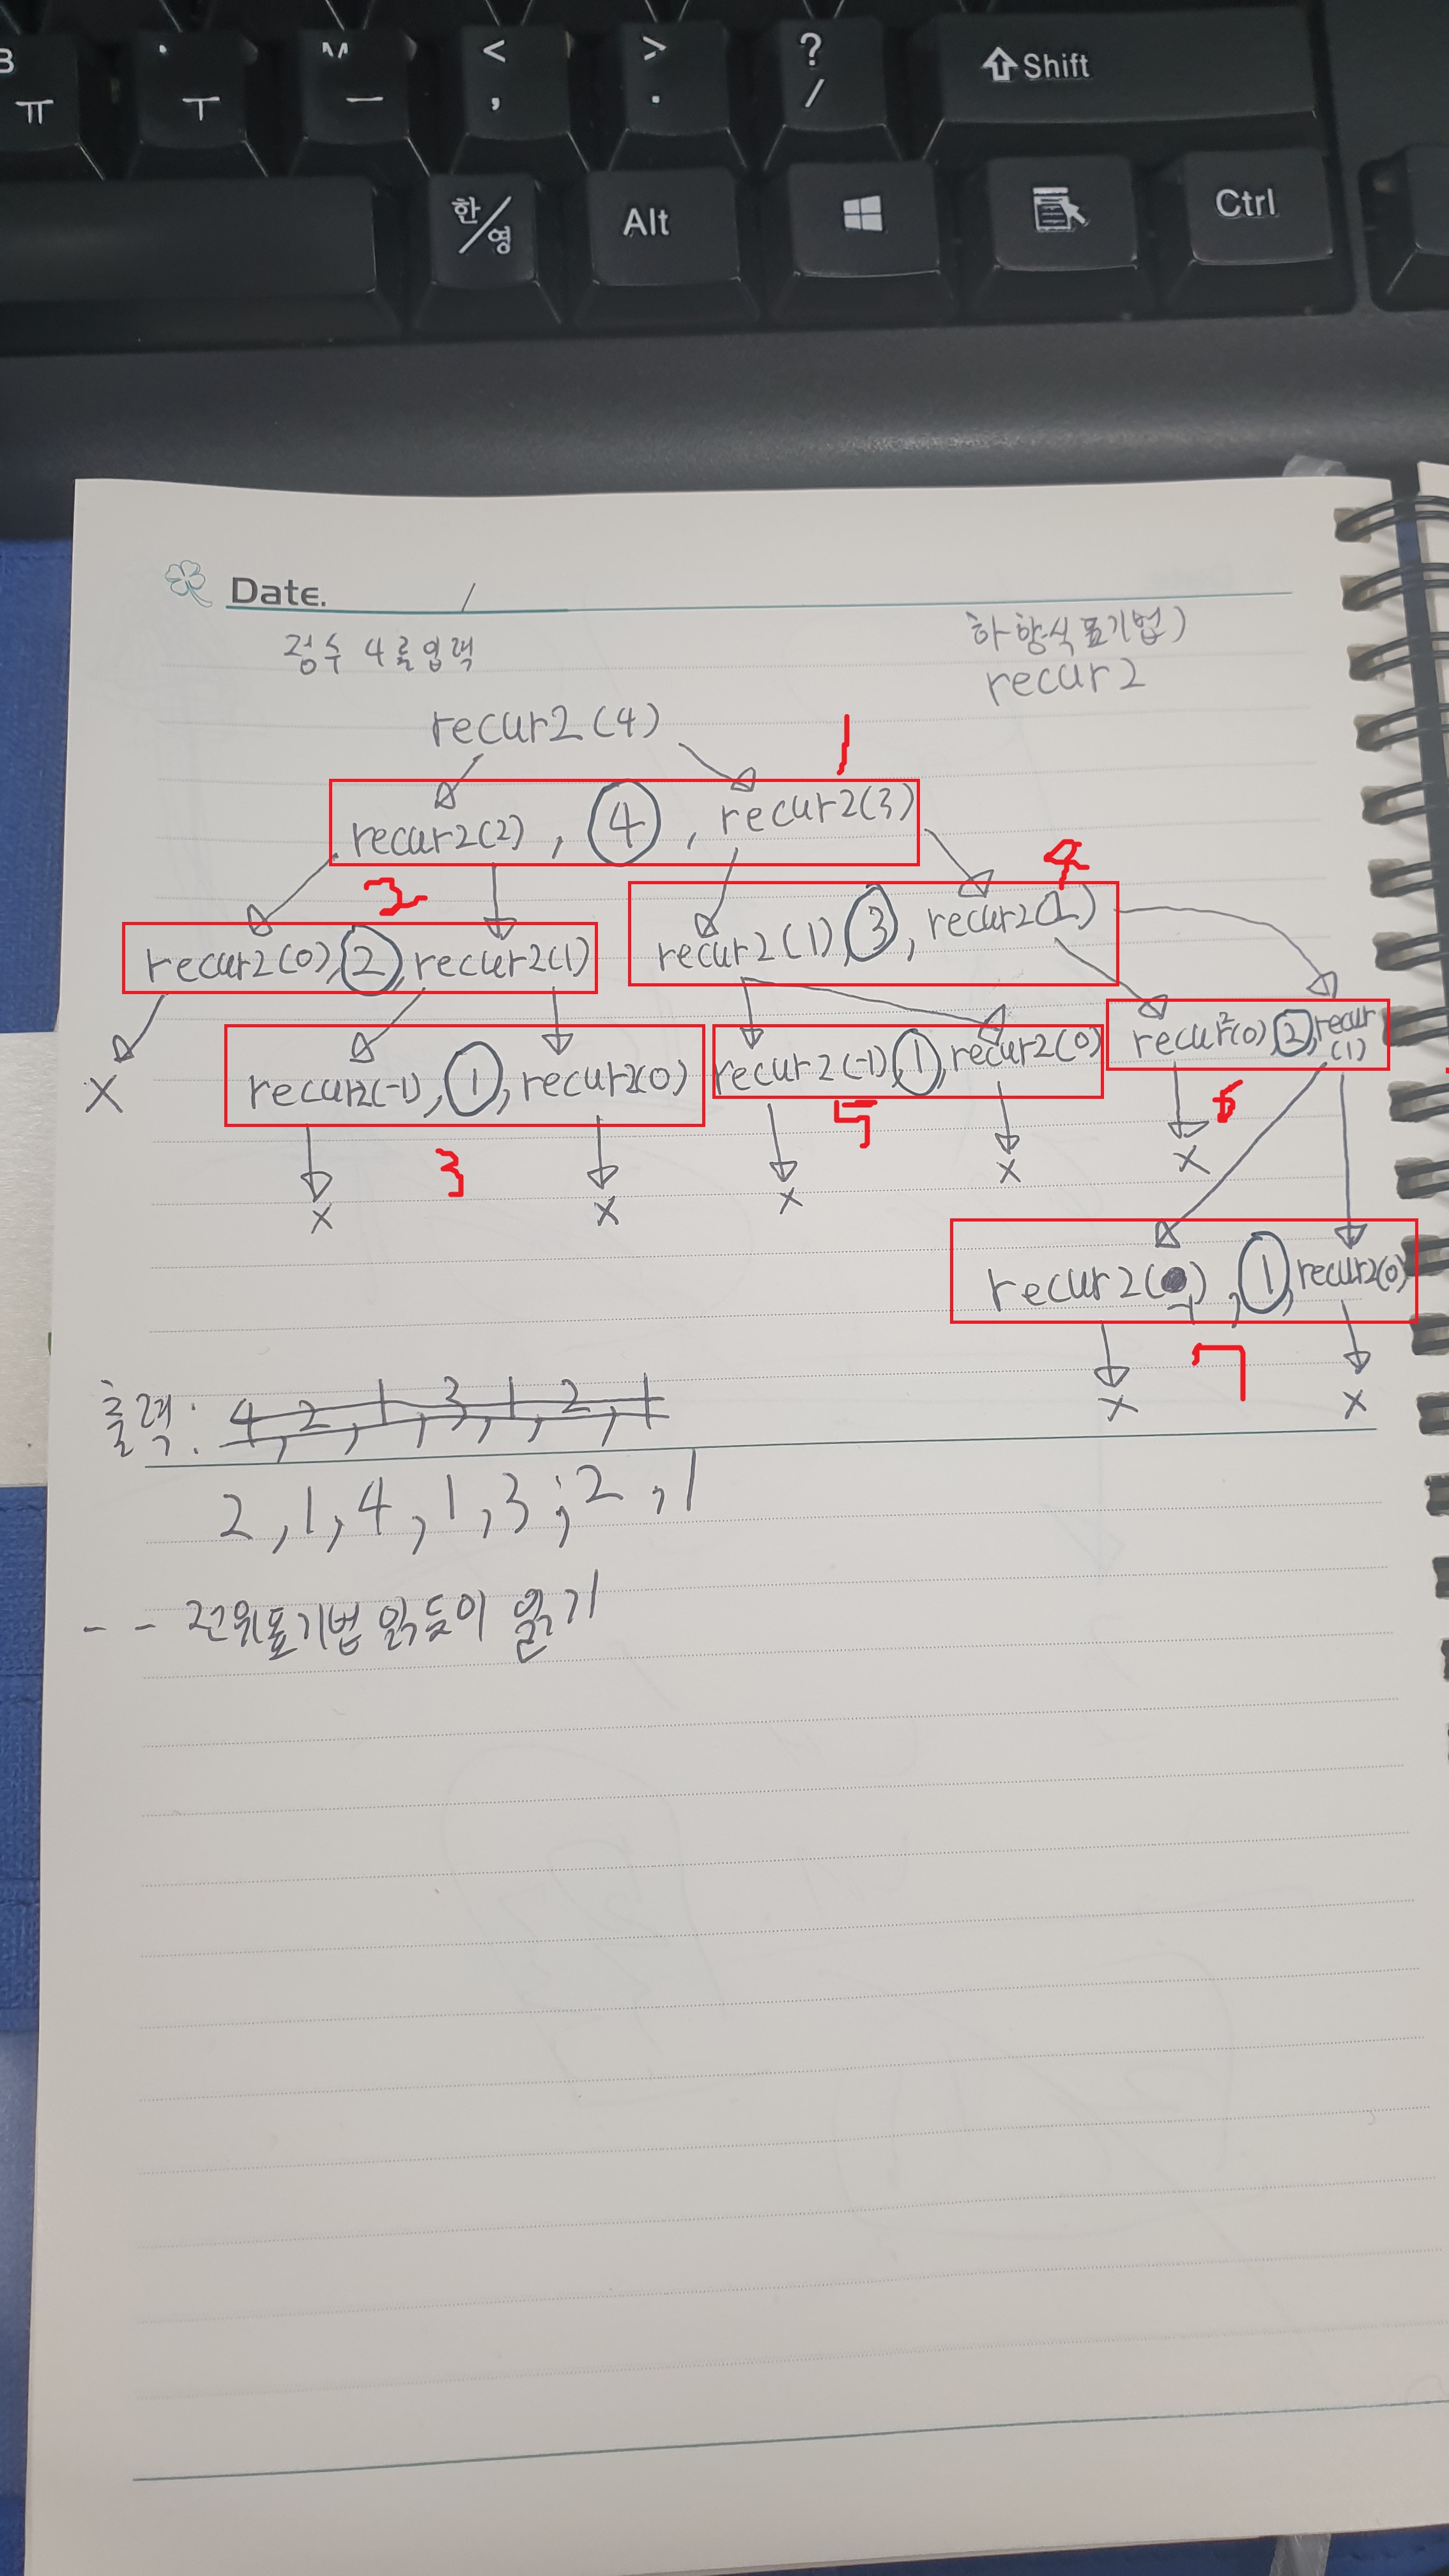 B ㅠ
ㅜ
M ㅡ
< ,
> .
? /
⇧ Shift
한/영
Alt
Ctrl
Date. /
정수 4를 입력
하향식 표기법)
recur2
recur2(4)
1
recur2(2), 4, recur2(3)
2
4
recur2(0), 2, recur2(1)
recur2(1) 3, recur2(2)
recur2(-1), 1, recur2(0)
recur2(-1), 1, recur2(0)
recur2(0), 2, recur (1)
X
3
5
6
X X X X X
recur2(-1), 1, recur2(0)
7
X X
출력: 4, 2, 1, 3, 1, 2, 1
2, 1, 4, 1, 3, 2, 1
-- 전위표기법 읽듯이 읽기